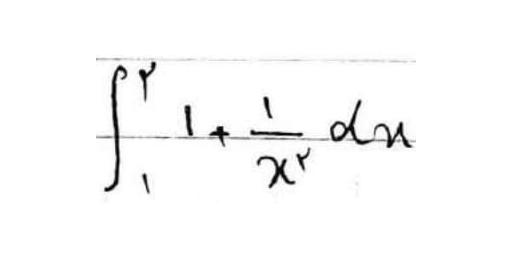 ∫₁^۲ ۱ + ۱/x^۲ dx